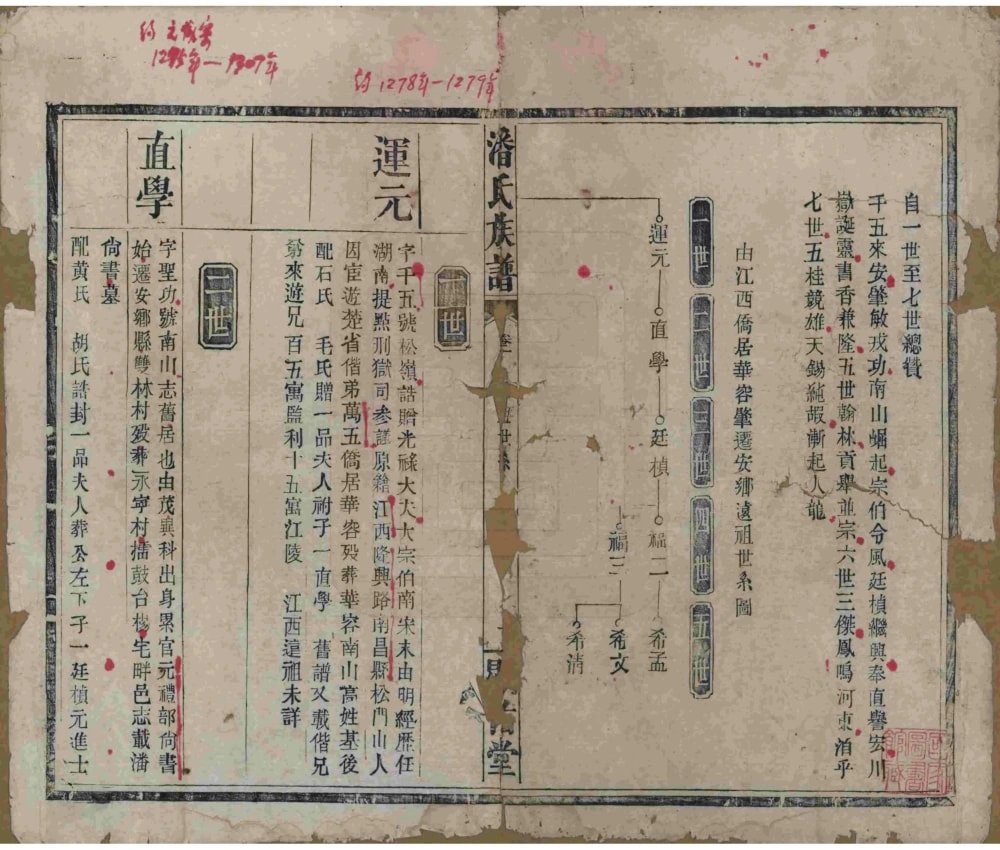 約元成宗
1295年—1307年
約1278年—1279年
自一世至七世總贊
千五來安肇敏戎功南山崛起宗伯令風廷楨繼興奉直譽宏川
嶽誕靈書香兼隆五世翰林貢舉並宗六世三傑鳳鳴河東洎乎
七世五桂競雄天錫純嘏漸起人龍
由江西僑居華容肇遷安鄉遠祖世系圖
一世
二世
三世
四世
五世
運元
直學
廷楨
福二
希孟
福三
希文
希清
潘氏族譜
卷
世系
堂
一世
運元
字千五號松嶺誥贈光祿大夫大宗伯南宋末由明經歷任
湖南提點刑獄司參議原籍江西隆興路南昌縣松門山人
因宦遊楚省偕弟萬五僑居華容歿葬華容南山高姓基後
配石氏 毛氏贈一品夫人祔子一直學 舊譜又載偕兄
弟來遊兄百五寓監利十五寓江陵 江西遠祖未詳
二世
直學
字聖功號南山志舊居也由茂異科出身累官元禮部尚書
始遷安鄉縣雙林村歿葬永寧村擂鼓台樓宅畔邑志載潘
尚書墓
配黃氏 胡氏誥封一品夫人葬公左下子一廷楨元進士